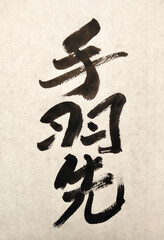 手羽先